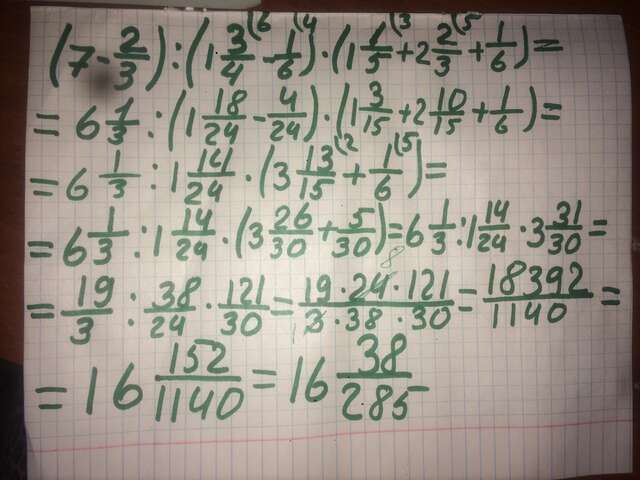 (7 - 2/3) : (1 3/4 (6 - 1/6 (4) · (1 1/5 (3 + 2 2/3 (5 + 1/6) =
= 6 1/3 : (1 18/24 - 4/24) · (1 3/15 + 2 10/15 + 1/6) =
= 6 1/3 : 1 14/24 · (3 13/15 (2 + 1/6 (5) =
= 6 1/3 : 1 14/24 · (3 26/30 + 5/30) = 6 1/3 : 1 14/24 · 3 31/30 =
= 19/3 : 38/24 · 121/30 = 19 · 24 · 121 / 3 · 38 · 30 = 18392/1140 =
= 16 152/1140 = 16 38/285